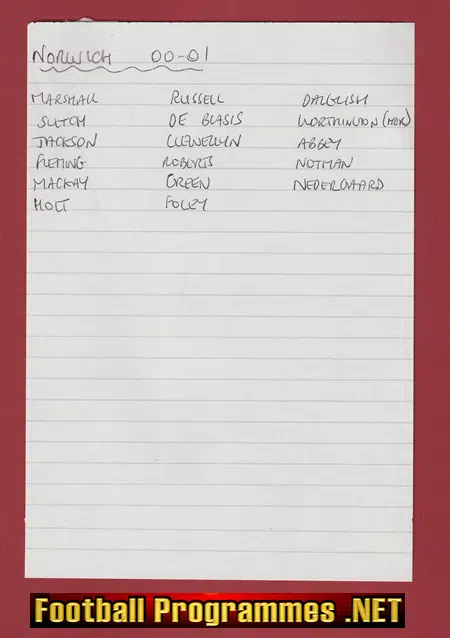 NORWICH 00-01
MARSHALL RUSSELL DALGLISH
SUTCH DE BLASIS WORTHINGTON (MGR)
JACKSON LLEWELLYN ABBEY
FLEMING ROBERTS NOTMAN
MACKAY GREEN NEDERGAARD
HOLT FOLEY
Football Programmes .NET